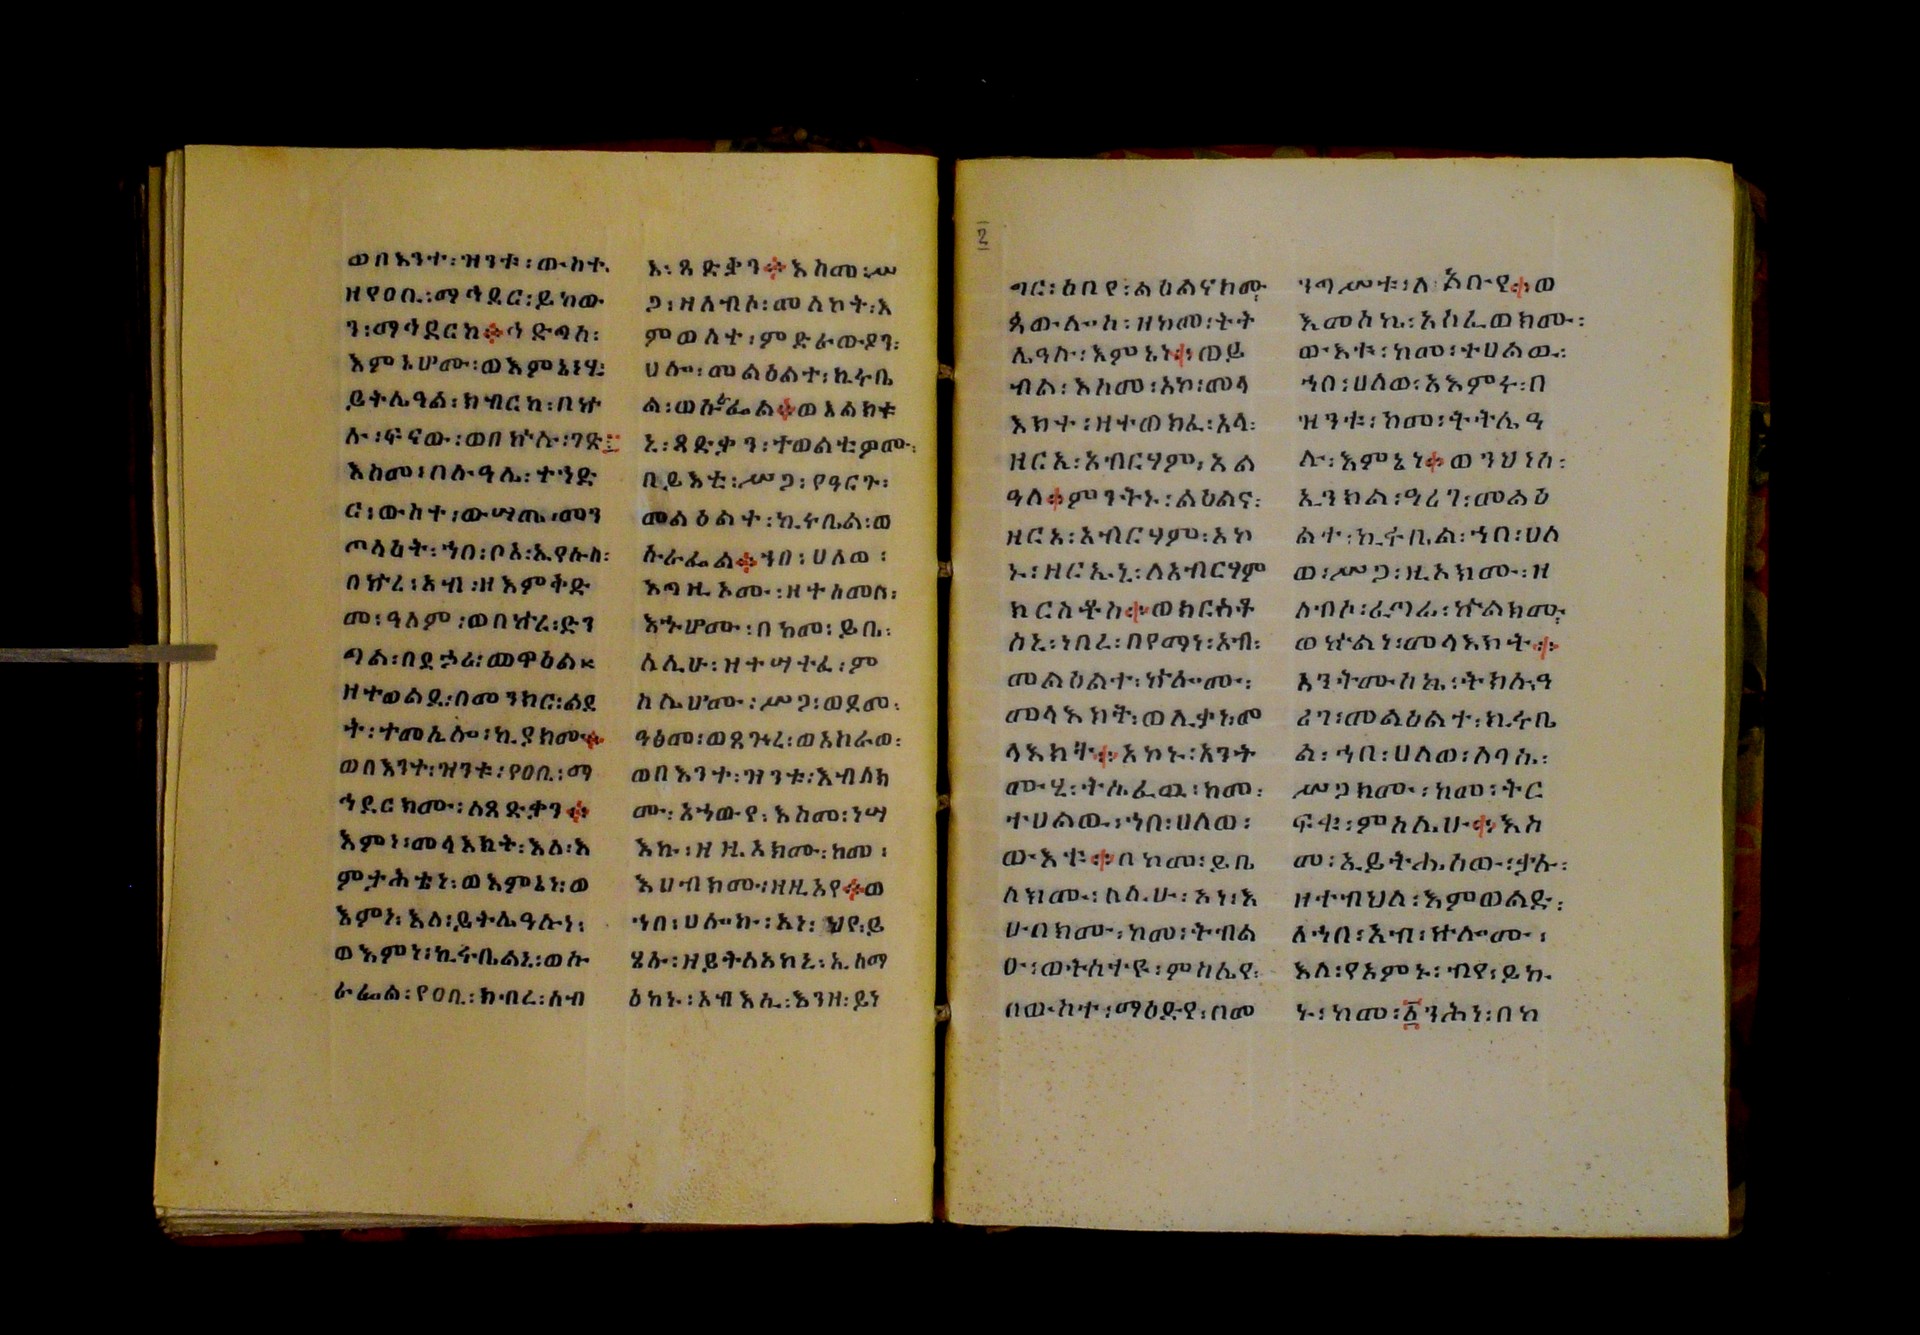 ወበእንተ፡ዝንቱ፡ውስተ፡
ዘየዐቢ፡ማኅደር፡ይከው
ን፡ማኅደርከ፨ኅድጣስ፡
እምኔሆሙ፡ወእምኔነሂ፡
ይትሌዓል፡ክብርከ፡በኵ
ሉ፡ፍናው፡ወበኵሉ፡ገጽ፤
እስመ፡በሉዓሌ፡ተንድ
ር፡ውስተ፡ውሣጤ፡መን
ጦላዕት፡ኀበ፡ቦአ፡ኢየሱስ፡
በኵረ፡አብ፡ዘእምቅድ
መ፡ዓለም፡ወበኵረ፡ድን
ግል፡በደኃሪ፡መዋዕል፡
ዘተወልደ፡በመንክር፡ልደ
ት፡ተመኢሎ፡ኪያክሙ፨
ወበእንተ፡ዝንቱ፡የዐቢ፡ማ
ኅደርክሙ፡ለጻድቃን፨
እምነ፡መላእክት፡እለ፡እ
ምታሕቴነ፡ወእምኔነ፡ወ
እምነ፡እለ፡ይትሌዓሉነ፡
ወእምነ፡ኪሩቤልኒ፡ወሱ
ራፌል፡የዐቢ፡ክብረ፡ለብ
እ፡ጻድቃን፨እስመ፡ሥ
ጋ፡ዘለብሶ፡መለኮት፡እ
ምወለተ፡ምድራውያን፡
ሀሎ፡መልዕልተ፡ኪሩቤ
ል፡ወሱራፌል፨ወእልክቱ
ኒ፡ጻድቃን፡ተወልቲዎሙ፡
በይእቲ፡ሥጋ፡የዓርጉ፡
መልዕልተ፡ኪሩቤል፡ወ
ሱራፌል፨ኀበ፡ሀለወ፡
እግዚኦሙ፡ዘተሰመሰ፡
እኅሆሙ፡በከመ፡ይቤ፡
ሲሲሁ፡ዝተሣተፈ፡ም
ስሌሆሙ፡ሥጋ፡ወደመ፡
ዓፅመ፡ወጸጕረ፡ወአከራወ፡
ወበእንተ፡ዝንቱ፡እብለክ
ሙ፡አኀውየ፡እስመ፡ነሣ
እኩ፡ዘዚአክሙ፡ከመ፡
እሀብክሙ፡ዘዚአየ፨ወ
ኀበ፡ሀሎኩ፡አነ፡ህየ፡ይ
ሄሉ፡ዘይትለአከኒ፡ኢስማ
ዕከኑ፡አብእሲ፡እንዘ፡ይነ
ግር፡ዕበየ፡ልዕልናክሙ፡
ጳውሎስ፡ዘከመ፡ትት
ሌዓሉ፡እምኔነ፨ወይ
ብል፡እስመ፡አኮ፡መላ
እክተ፡ዘተወክፈ፡አላ፡
ዘርአ፡አብርሃም፡አል
ዓለ፨ምንትኑ፡ልዕልና፡
ዘርአ፡አብርሃም፡አኮ
ኑ፡ዘርኡኒ፡ለአብርሃም
ክርስቶስ፨ወክርስቶ
ስኒ፡ነበረ፡በየማነ፡አብ፡
መልዕልተ፡ኵሎሙ፡
መላእክት፡ወሊቃነ፡መ
ላእክት፨አኮኑ፡አንት
ሙሂ፡ትሴፈዉ፡ከመ፡
ተሀልው፡ኀበ፡ሀለወ፡
ውእቱ፨በከመ፡ይቤ
ለክሙ፡ሲሲሁ፡አነ፡እ
ሁበክሙ፡ከመ፡ትብል
ዑ፡ወትስተዩ፡ምስሌየ፡
በውስተ፡ማዕድየ፡በመ
ንግሥቱ፡ለአቡየ፨ወ
እመሰኬ፡አሰፈወክሙ፡
ውእቱ፡ከመ፡ተሀልዉ፡
ኀበ፡ሀለወ፡አእምሩ፡በ
ዝንቱ፡ከመ፡ትትሌዓ
ሉ፡እምኔነ፨ወንህነስ፡
ኢንክል፡ዓሪገ፡መልዕ
ልተ፡ኪሩቤል፡ኀበ፡ሀለ
ወ፡ሥጋ፡ዚአክሙ፡ዘ
ለብሶ፡ፈጣሪ፡ኵልክሙ፡
ወኵልነ፡መላእክት፨
አንትሙሰኬ፡ትክሉ፡ዓ
ሪገ፡መልዕልተ፡ኪሩቤ
ል፡ኀበ፡ሀለወ፡ለባሴ፡
ሥጋክሙ፡ከመ፡ትር
ፍቁ፡ምስሌሁ፨እስ
መ፡ኢይትሔሰው፡ቃሉ፡
ዘተብህለ፡እምወልድ፡
ለኀበ፡አብ፡ኵሎሙ፡
እለ፡የአምኑ፡ብየ፡ይኩ
ኑ፡ከመ፡፩ንሕነ፡በከ